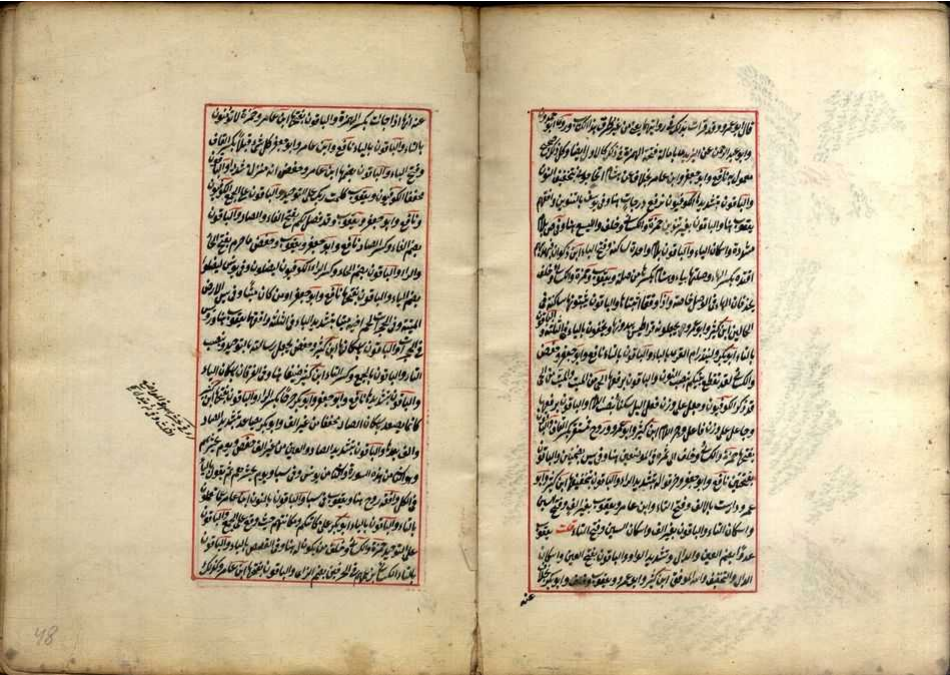 قال ابو عمرو وقد قرأت
وابو عبد الرحمن عن اليزيدي بامالة فتحة الهمزة
نافع وابو جعفر وابن عامر بخلاف عن هشام اتحاجوني بتخفيف النون
والباقون بتشديدها الكوفيون نرفع درجات هنا وفي يوسف بالتنوين وافقهم
يعقوب هنا والباقون بغير تنوين حمزة والكسائي وخلف والليسع هنا وفي ص بلام
مشددة واسكان الياء والباقون بلام واحدة ساكنة وفتح الياء ابن ذكوان
اقتده بكسر الهاء وصلتها بياء وهشام بكسرها من غير صلة ويعقوب وحمزة والكسائي وخلف
يحذفان الهاء في الوصل خاصة واذا وقفا اثبتاها والباقون يثبتونها ساكنة في
الحالين ابن كثير وابو عمرو يجعلونه قراطيس يبدونها ويخفون بالياء والباقون
بالتاء ابو بكر ولينذر ام القرى بالياء والباقون بالتاء نافع وابو جعفر وحفص
والكسائي لقد تقطع بينكم بنصب النون والباقون برفعها الحي من الميت والميت من الحي
قد ذكر الكوفيون وجعل على وزن فعل الليل سكنا بنصب اللام والباقون برفعها
وجاعل على وزن فاعل وجر اللام ابن كثير وابو عمرو وروح فمستقر بكسر القاف والباقون
بفتحها حمزة والكسائي وخلف الى ثمره في الموضعين هنا وفي يس بضمتين والباقون
بفتحتين نافع وابو جعفر وخرقوا له بتشديد الراء والباقون بتخفيفها ابن كثير وابو
عمرو دارست بالالف وفتح التاء وابن عامر ويعقوب بغير الف وفتح السين
واسكان التاء والباقون بغير الف واسكان السين وفتح التاء قلت يعقوب
عدوا بضم العين والدال وتشديد الواو والباقون بفتح العين واسكان
الدال والتخفيف والله الموفق ابن كثير وابو عمرو ويعقوب وخلف وابو بكر بخلاف
عنه
عنه انها اذا جاءت بكسر الهمزة والباقون بفتحها ابن عامر وحمزة لا تؤمنون
بالتاء والباقون بالياء نافع وابن عامر وابو جعفر وكل شيء قبلا بكسر القاف
وفتح الباء والباقون بضمهما ابن عامر وحفص انه منزل مشددا والباقون
مخففا الكوفيون ويعقوب كلمت ربك على التوحيد والباقون على الجمع الكوفيون
ونافع وابو جعفر ويعقوب وقد فصل لكم بفتح الفاء والصاد والباقون
بضم الفاء وكسر الصاد نافع وابو جعفر ويعقوب وحفص ما حرم بفتح الحاء
والراء والباقون بضم الحاء وكسر الراء الكوفيون ليضلون وفي يونس ليضلوا
بضم الياء والباقون بفتحها نافع وابو جعفر ويعقوب اومن كان ميتا وفي يس الارض
الميتة وفي الحجرات لحم اخيه ميتا بتشديد الياء في الثلثة وافقهم يعقوب هنا ورويس
في الحجرات والباقون باسكانها ابن كثير وحفص يجعل رسالته بالتوحيد ونصب
التاء والباقون بالجمع وكسر التاء ابن كثير ضيقا هنا وفي الفرقان باسكان الياء
والباقون بتشديدها نافع وابو جعفر وابو بكر حرجا بكسر الراء والباقون بفتحها ابن كثير
كانما يصعد باسكان الصاد مخففا من غير الف وابو بكر يصاعد بتشديد الصاد
والف بعدها والباقون بتشديد الصاد والعين من غير الف حفص ويوم يحشرهم
وهو الثاني من هذه السورة والثاني من يونس وفي سبا ويوم يحشرهم ثم يقول بالياء
في الكل وافقه روح هنا ويعقوب في سبا والباقون بالنون ابن عامر عما تعملون
بالتاء والباقون بالياء ابو بكر على مكاناتكم ومكاناتهم حيث وقع على الجمع والباقون
على التوحيد حمزة والكسائي وخلف من يكون له هنا وفي القصص بالياء والباقون
بالتاء الكسائي بزعمهم في الحرفين بضم الزاي والباقون بفتحها ابن عامر وكذلك
48